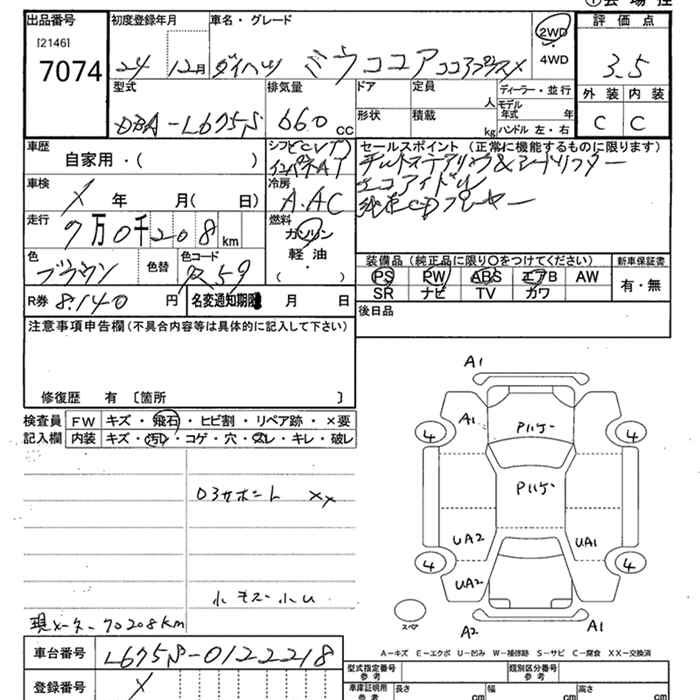 出品番号 初度登録年月 車名・グレード 評価点
[2146]
7074 24 12月 ダイハツ ミラココア ココアプラスX 2WD 4WD 3.5
型式 排気量 ドア 定員 人 ディーラー・並行 外装 内装
DBA-L675S 660 CC 形状 積載 kg モデル年式 年 ハンドル 左・右 C C
車歴 自家用・( ) シフト CVT セールスポイント (正常に機能するものに限ります)
インパネAT チルトステアリング&シートリフター
車検 X 年 月( 日) 冷房 A.AC エコアイドル
純正CDプレーヤー
走行 7万0千208km 燃料 ガソリン
軽油
( )
色 ブラウン 色替 色コード R59 装備品 (純正品に限り○をつけてください) 新車保証書
PS PW ABS エアB AW 有・無
SR ナビ TV カワ
R券 8.140 円 名変通知期限 月 日 後日品
注意事項申告欄(不具合内容等は具体的に記入して下さい)
修復歴 有 〔箇所 〕
検査員 FW キズ・飛石・ヒビ割・リペア跡・×要
記入欄 内装 キズ・汚レ・コゲ・穴・スレ・キレ・破レ
A1
A1
4 4
Pハゲ
Pハゲ
ロアサポート XX
UA2 UA1
4 4
UA2
スペア
A2 A1
現メーター 70208KM
A-キズ E-エクボ U-凹み W-補修跡 S-サビ C-腐食 XX-交換済
車台番号 L675S-0122218
型式指定番号 参考 類別区分番号 参考
登録番号 X 車庫証明用 参考 長さ cm 幅 cm 高さ cm